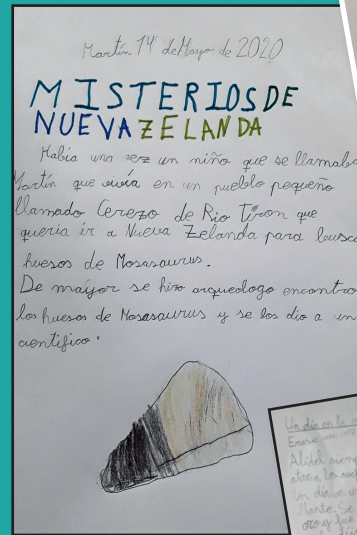 Martín 14 de Mayo de 2020
MISTERIOS DE
NUEVA ZELANDA
Habia una vez un niño que se llamaba
Martín que vivía en un pueblo pequeño
llamado Cerezo de Rio Tiron que
queria ir a Nueva Zelanda para busca
huesos de Mosasaurus.
De maijor se hizo arqueologo encontro
los huesos de Mosasaurus y se los dio a un
cientifico.
Un día en la
Erase una vez